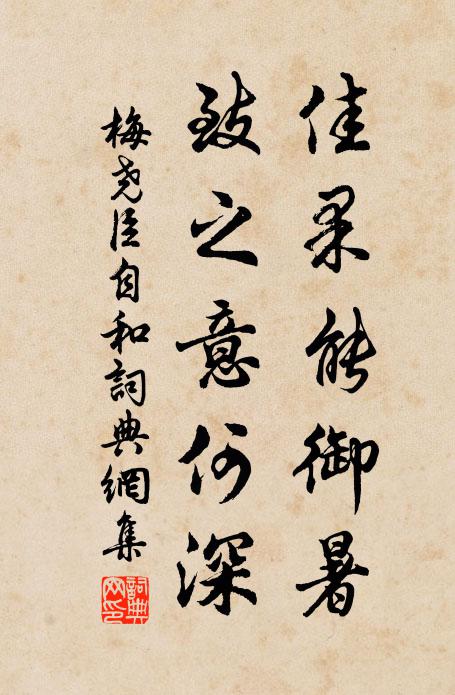 佳果能御暑
致之意何深
梅尧臣自和詞典網集
詞典网印